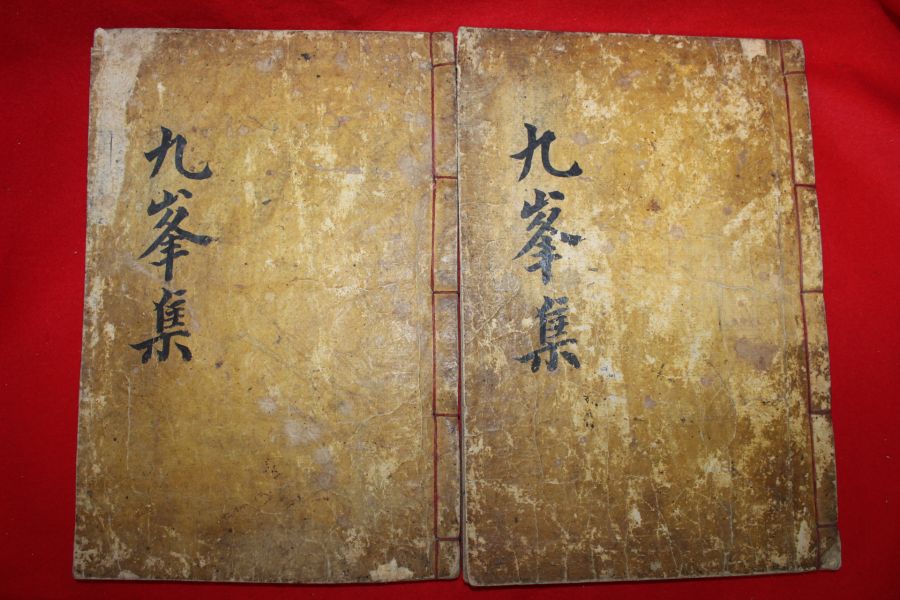 九峯集
九峯集